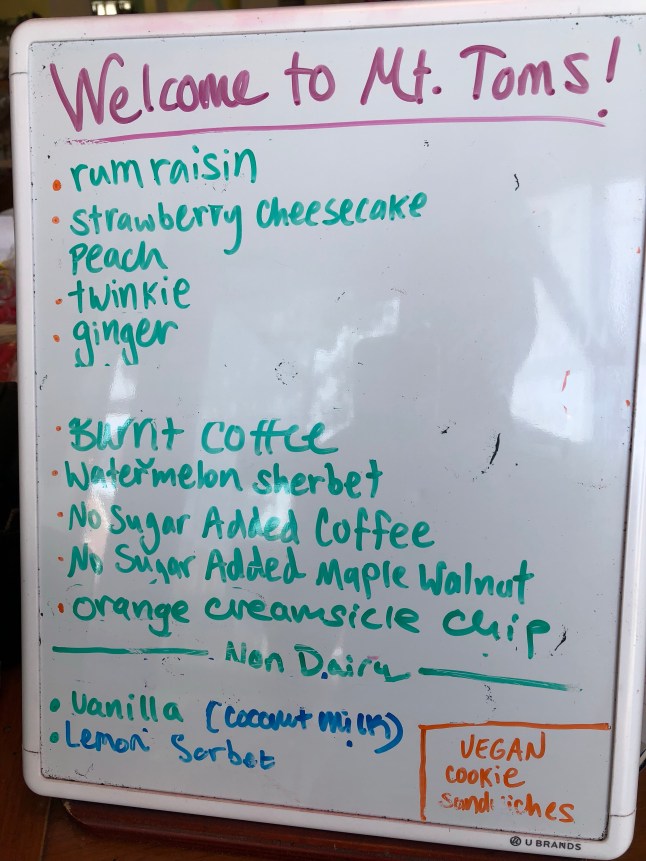 Welcome to Mt. Toms!
• rum raisin
• strawberry cheesecake
Peach
• twinkie
• ginger
• Burnt coffee
• Watermelon sherbet
• No Sugar Added Coffee
• No Sugar Added Maple Walnut
• orange creamsicle chip
Non Dairy
• Vanilla (coconut milk)
• Lemon Sorbet
VEGAN
cookie
sandwiches
U BRANDS